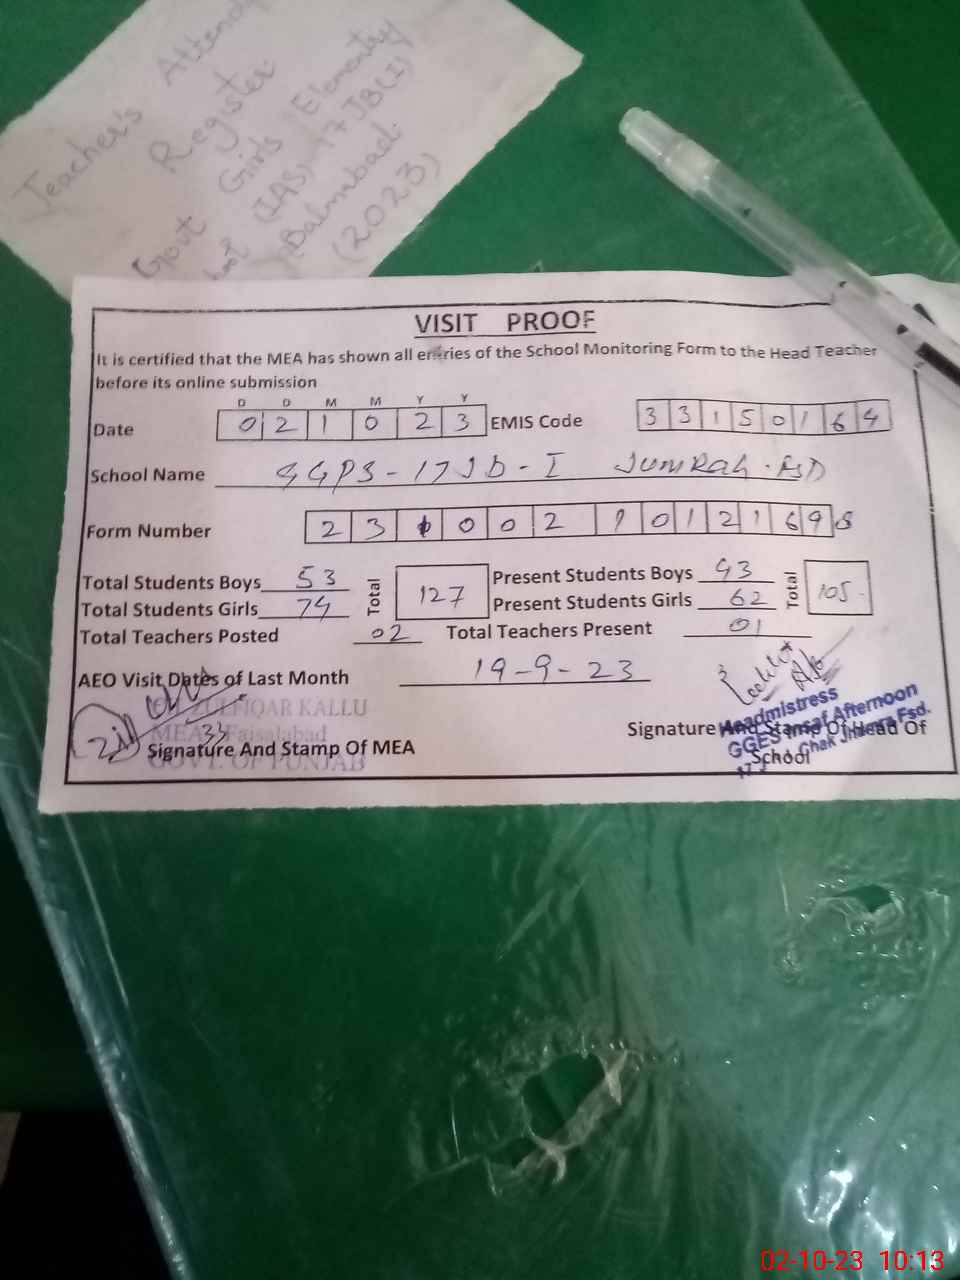 Teacher's Attend
Register
Govt Girls Elementry
(IAS) 17 JB(I)
(2023)
VISIT PROOF
It is certified that the MEA has shown all entries of the School Monitoring Form to the Head Teacher
before its online submission
D D M M Y Y
Date 0 2 1 0 2 3 EMIS Code 3 3 1 5 0 1 6 4
School Name GGPS - 17 JB - I Jumrah . FSD
Form Number 2 3 1 0 0 2 1 0 1 2 1 6 9 5
Total Students Boys 53 Total 127 Present Students Boys 43 Total 105
Total Students Girls 74 Present Students Girls 62
Total Teachers Posted 02 Total Teachers Present 01
AEO Visit Dates of Last Month 19-9-23
ZULFIQAR KALLU
MEA Faisalabad
Signature And Stamp Of MEA
GOVT. OF PUNJAB
Signature And Stamp Of Head Of
School
Headmistress
GGES Insaf Afternoon
Chak Jhumra Fsd.
02-10-23 10:13